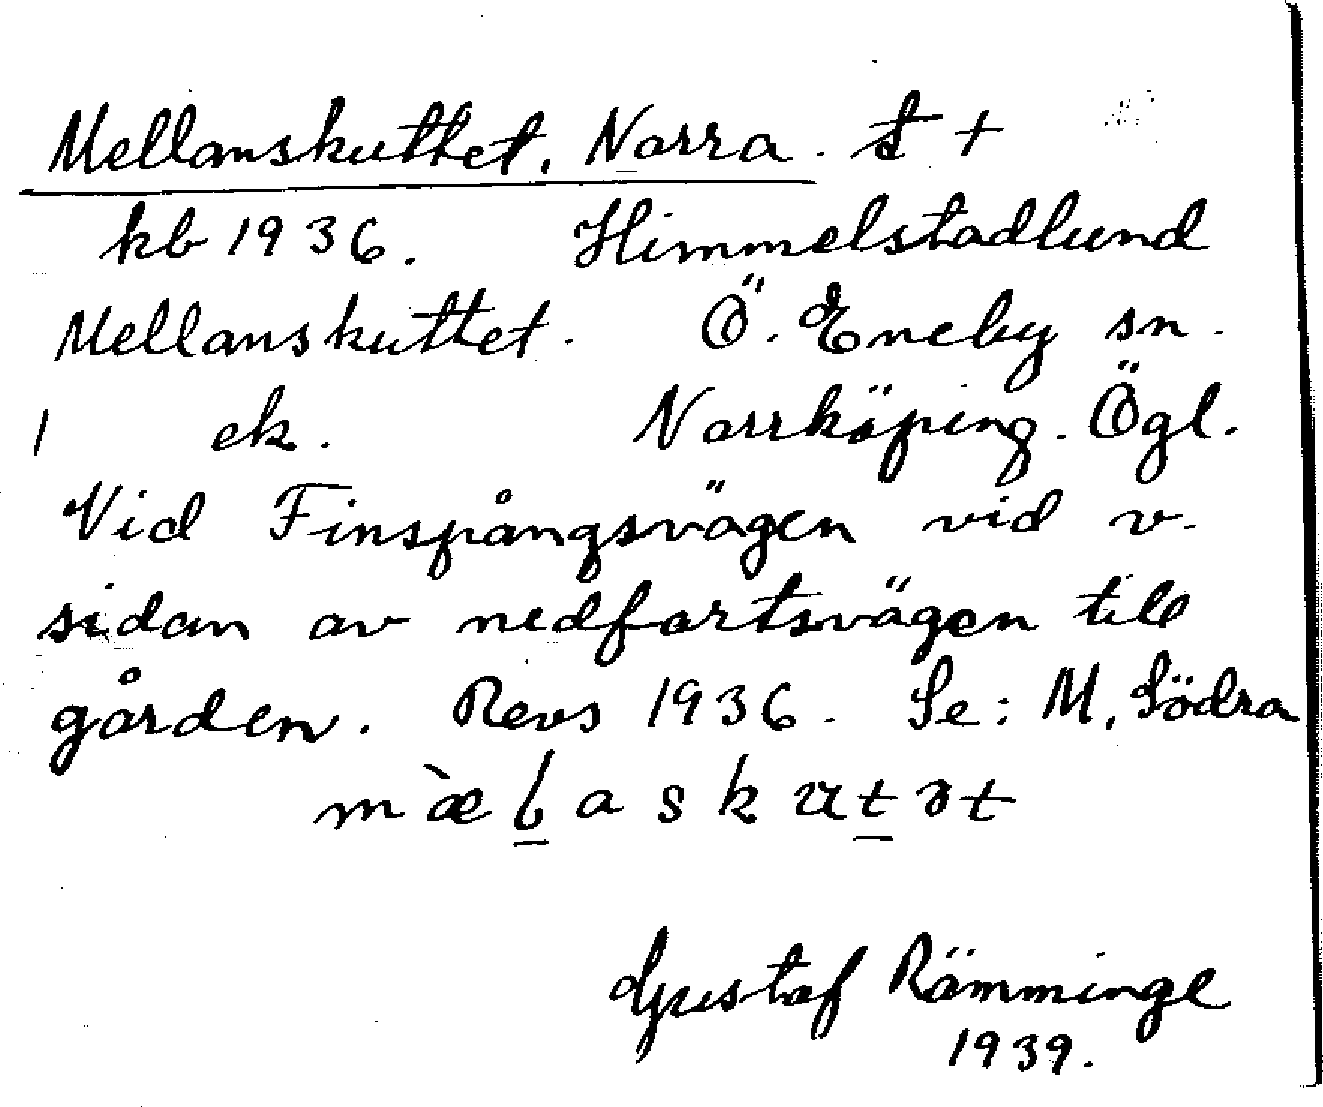 Mellanskuttet, Norra. t +
kb 1936. Himmelstadlund
Mellanskuttet. Ö. Eneby sn.
1 ek. Norrköping. Ögl.
Vid Finspångsvägen vid v.
sidan av nedfartsvägen till
gården. Revs 1936. Se: M, Södra
mæ̀laskutət
Gustaf Rämminge
1939.